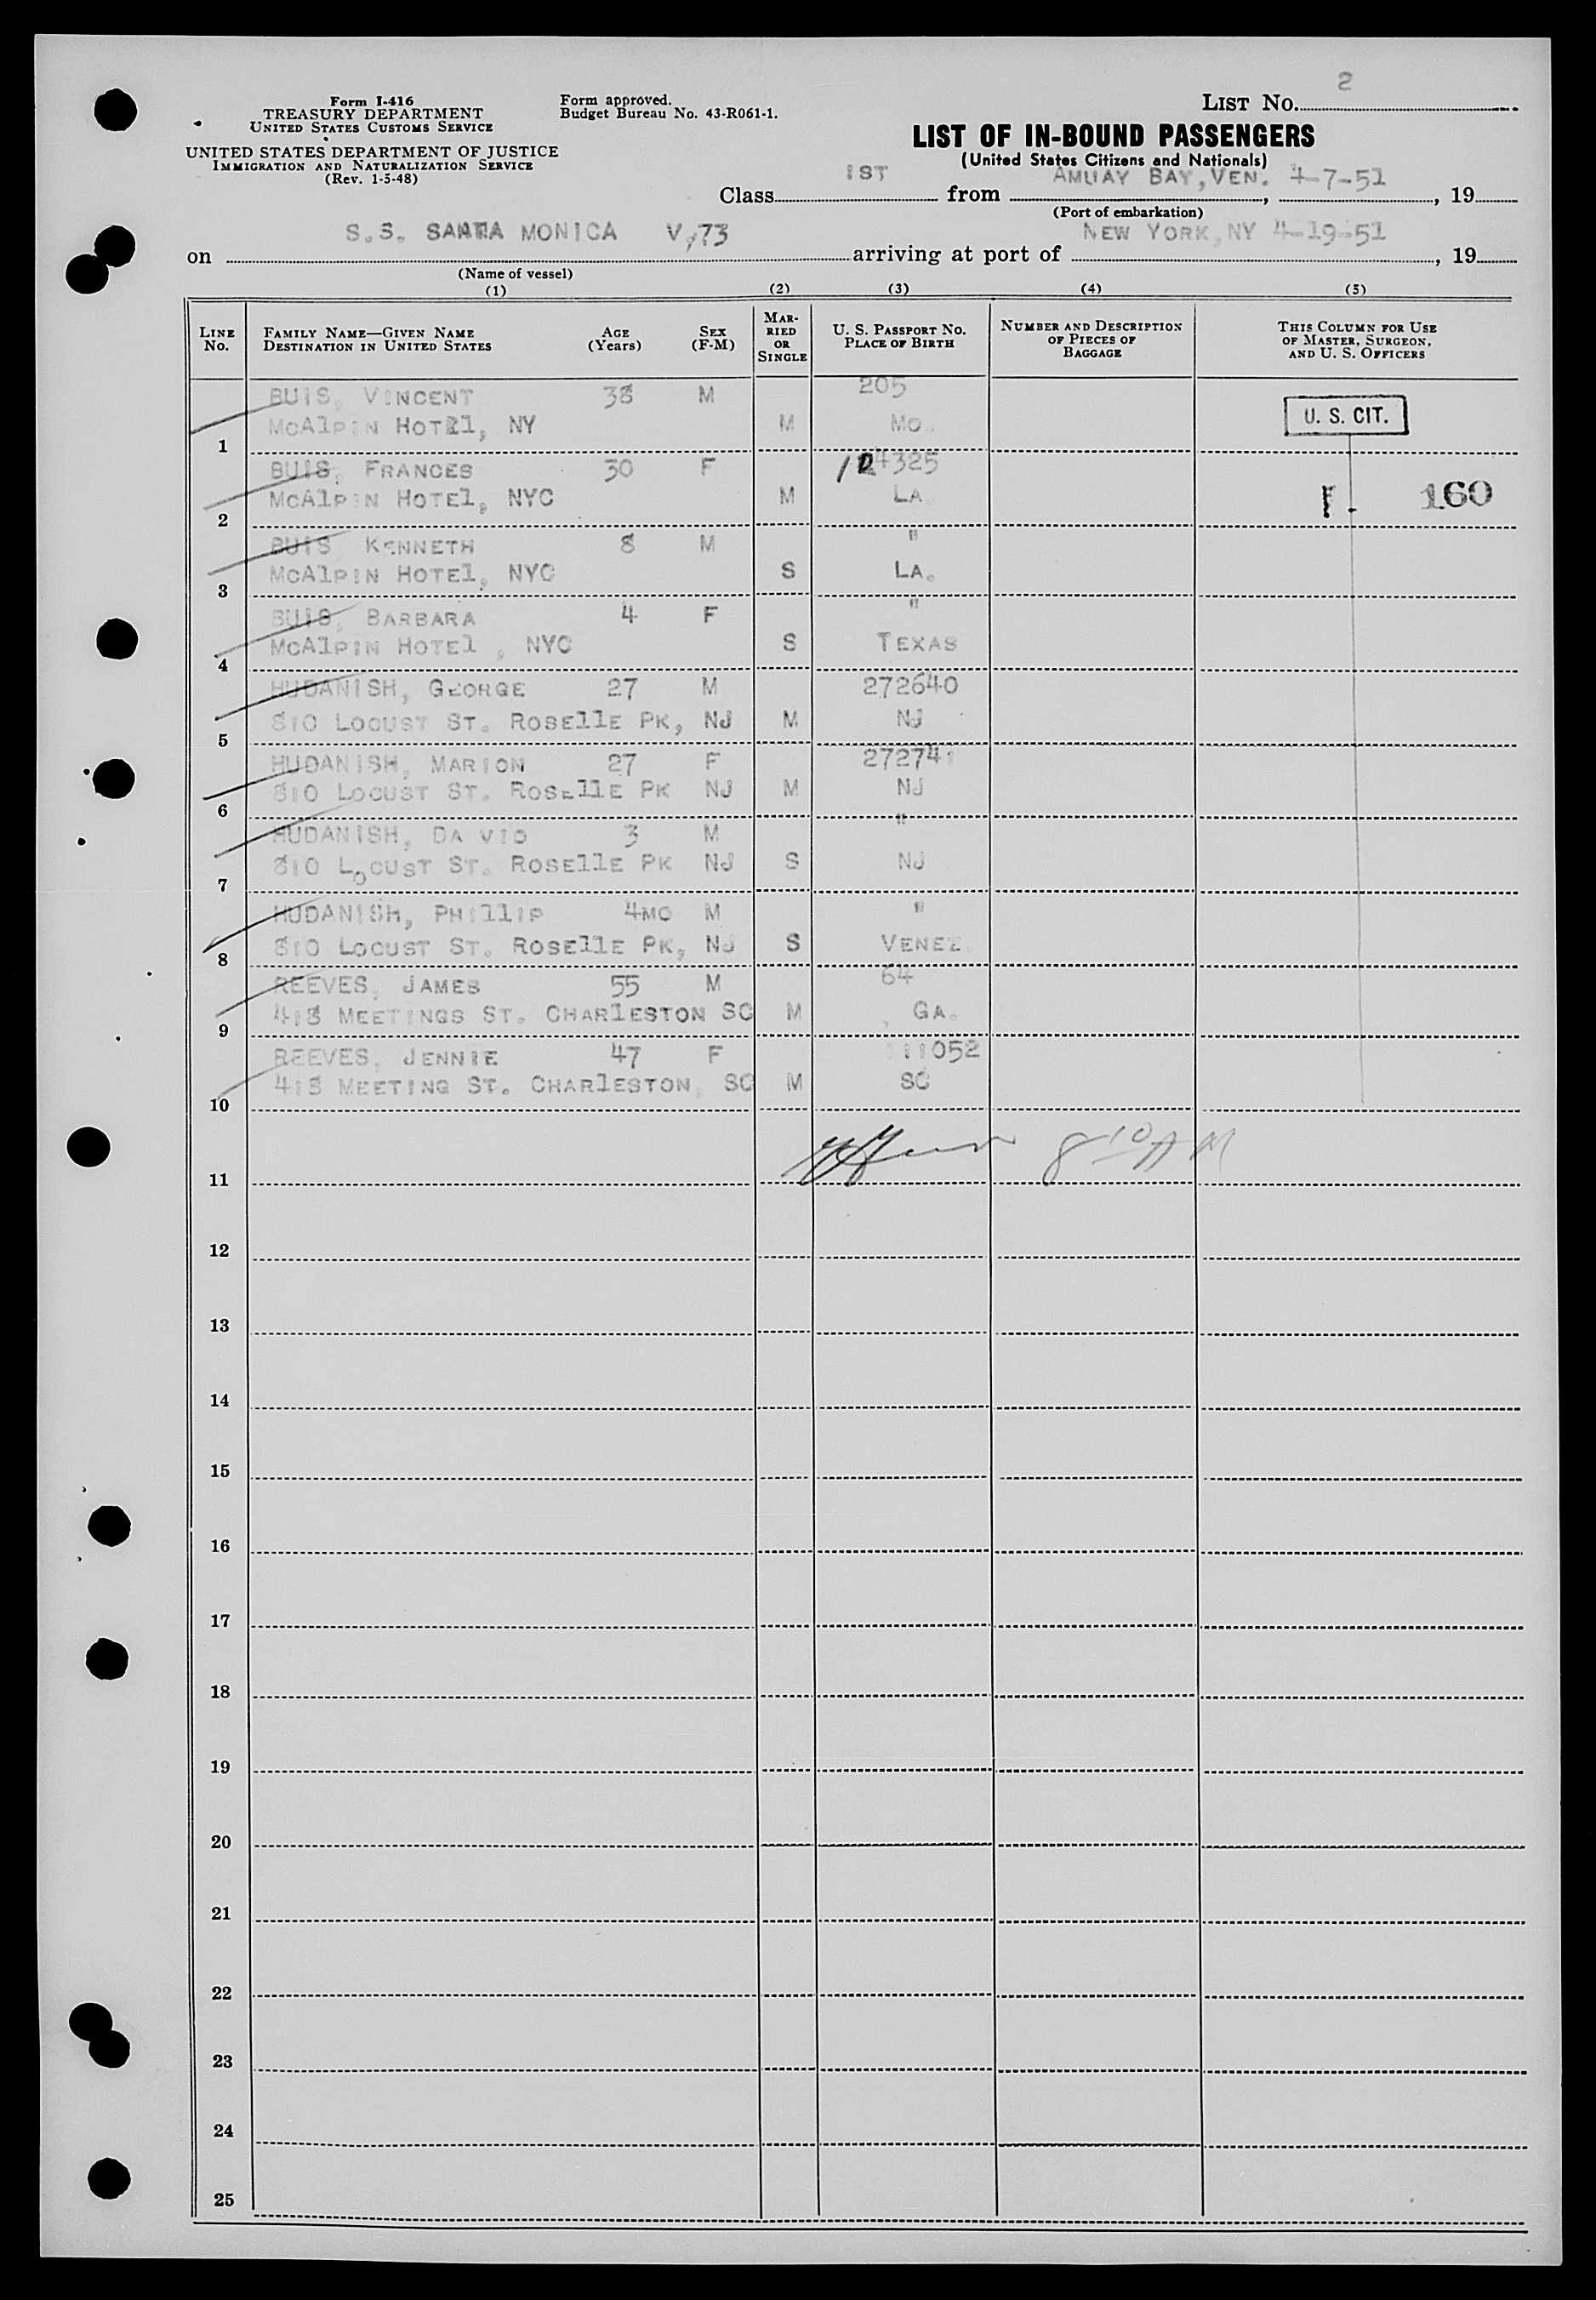 2
Form I-416
TREASURY DEPARTMENT
UNITED STATES CUSTOMS SERVICE
UNITED STATES DEPARTMENT OF JUSTICE
IMMIGRATION AND NATURALIZATION SERVICE
(Rev. 1-5-48)
Form approved.
Budget Bureau No. 43-R061-1.
LIST No.
LIST OF IN-BOUND PASSENGERS
(United States Citizens and Nationals)
Class 1ST from AMUAY BAY, VEN. 4-7-51, 19
(Port of embarkation)
on S.S. SANTA MONICA V,73 arriving at port of NEW YORK, NY 4-19-51, 19
(Name of vessel)
(1) (2) (3) (4) (5)
LINE No. FAMILY NAME—GIVEN NAME DESTINATION IN UNITED STATES AGE (Years) SEX (F-M) MARRIED OR SINGLE U. S. PASSPORT No. PLACE OF BIRTH NUMBER AND DESCRIPTION OF PIECES OF BAGGAGE THIS COLUMN FOR USE OF MASTER, SURGEON, AND U. S. OFFICERS
BUIS, VINCENT 38 M 205
1 McAlpIN HOTEl, NY M MO. U. S. CIT.
BUIS, FRANCES 30 F 124325
2 McAlpIN HOTEl, NYC M LA. 160
BUIS KENNETH 8 M "
3 McAlpIN HOTEl, NYC S LA.
BUIS, BARBARA 4 F "
4 McAlpIN HOTEl , NYC S TEXAS
HUDANISH, GEORGE 27 M 272640
5 810 LOCUST ST. ROSEllE PK, NJ M NJ
HUDANISH, MARION 27 F 272741
6 810 LOCUST ST. ROSEllE PK NJ M NJ
HUDANISH, DA VID 3 M "
7 810 LOCUST ST. ROSEllE PK NJ S NJ
HUDANISH, PHIllIP 4MO M "
8 810 LOCUST ST. ROSEllE PK, NJ S VENEZ.
REEVES, JAMES 55 M 64
9 418 MEETINGS ST. CHARlESTON SC M GA.
REEVES, JENNIE 47 F 111052
10 418 MEETING ST. CHARlESTON, SC M SC
11 8 10 AM
12
13
14
15
16
17
18
19
20
21
22
23
24
25